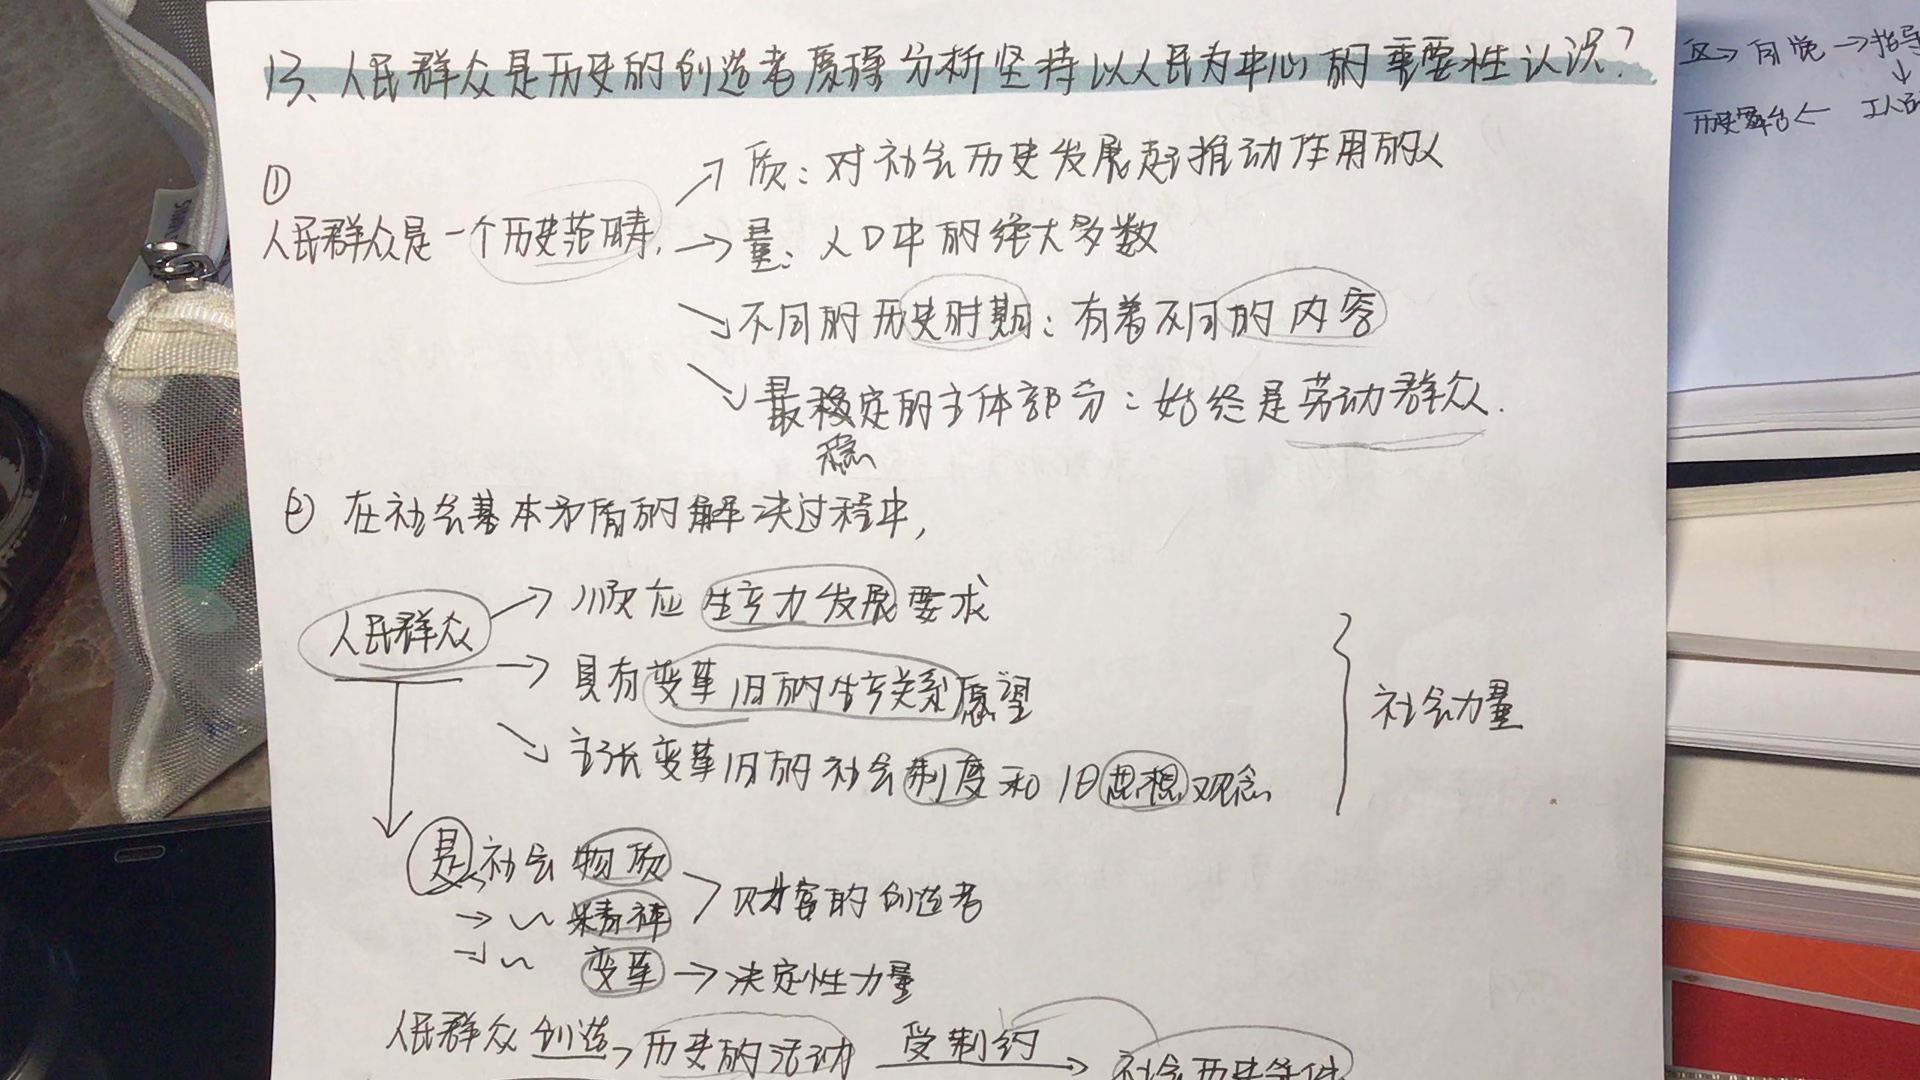 13、人民群众是历史的创造者原理分析坚持以人民为中心的重要性认识?
①
人民群众是一个历史范畴,
→ 质:对社会历史发展起推动作用的人
→ 量:人口中的绝大多数
↘ 不同的历史时期:有着不同的内容
↘ 最稳定的主体部分:始终是劳动群众.
稳
② 在社会基本矛盾的解决过程中,
人民群众
→ 顺应生产力发展要求
→ 具有变革旧的生产关系愿望
↘ 主张变革旧的社会制度和旧思想观念
} 社会力量
是社会物质
→ ~ 精神 > 财富的创造者
→ ~ 变革 → 决定性力量
人民群众创造→历史的活动 受制约→ 社会历史条件
→ 自觉 → 指导
↓
历史舞台 ← 工人